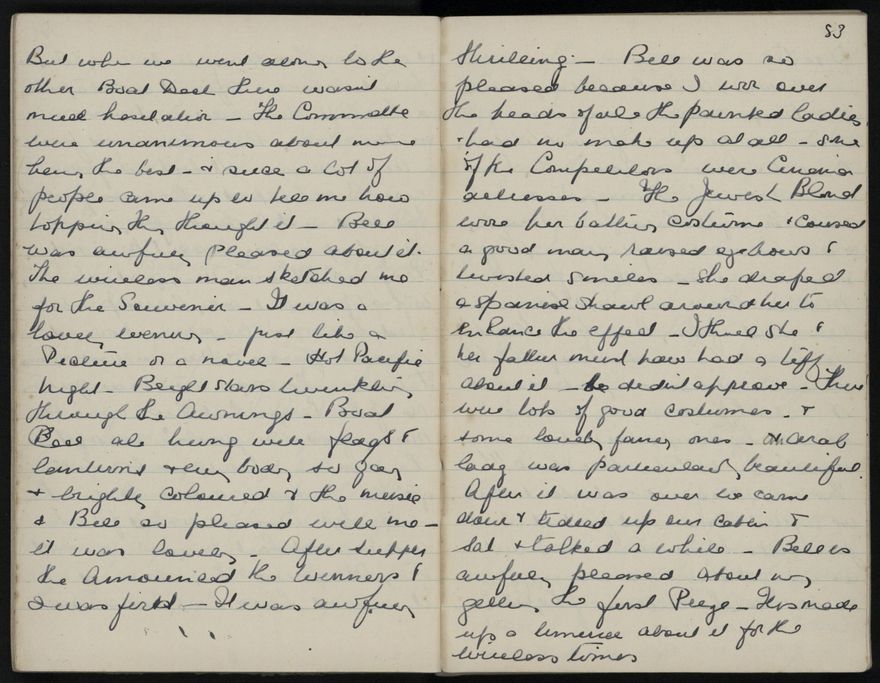 But when we went along to the
other Boat Deck there wasn't
much hesitation – The Committee
were unanimous about mine
being the best – & such a lot of
people came up to tell me how
topping they thought it – Bell
was awfully pleased about it.
The wireless man sketched me
for the Souvenir – It was a
lovely evening – just like a
Picture or a novel – Hot Pacific
night – Bright stars twinkling
through the Awnings – Boat
Deck all hung with flags &
lanterns & every body so gay
& brightly coloured & the music
& Bell so pleased with me –
it was lovely – After supper
the announced the winners &
I was first – It was awfully
83
thrilling – Bell was so
pleased because I won over
the heads of all the painted ladies
& had no make up at all – some
of the Competitors were Cinema
actresses – The Jewish Blond
wore her bathing costume & caused
a good many raised eyebrows &
twisted smiles – She draped
a Spanish shawl around her to
enhance the effect – I think she &
her father must have had a tiff
about it – he didn't approve – There
were lots of good costumes – &
some lovely fancy ones – An Arab
lady was particularly beautiful.
After it was over we came
down & tidied up our cabin &
sat & talked a while – Bell is
awfully pleased about my
getting the first Prize – Has made
up a limerick about it for the
wireless times